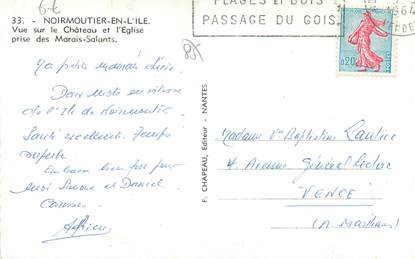 6-E
33. - NOIRMOUTIER-EN-L'ILE.
Vue sur le Château et l'Eglise
prise des Marais-Salants.
85
PLAGES ET BOIS
PASSAGE DU GOIS
1964
0,20
Ma petite maman chérie.
Deux mots en vitesse
de l'Ile de Noirmoutier
Santé excellente. Temps
superbe.
Embrasse bien fort pour
moi Simone et Daniel
Adrien
F. CHAPEAU, Editeur - NANTES
Madame Vve Baptistin Lautier
4 Avenue Général Leclerc
VENCE
(A. Maritimes)